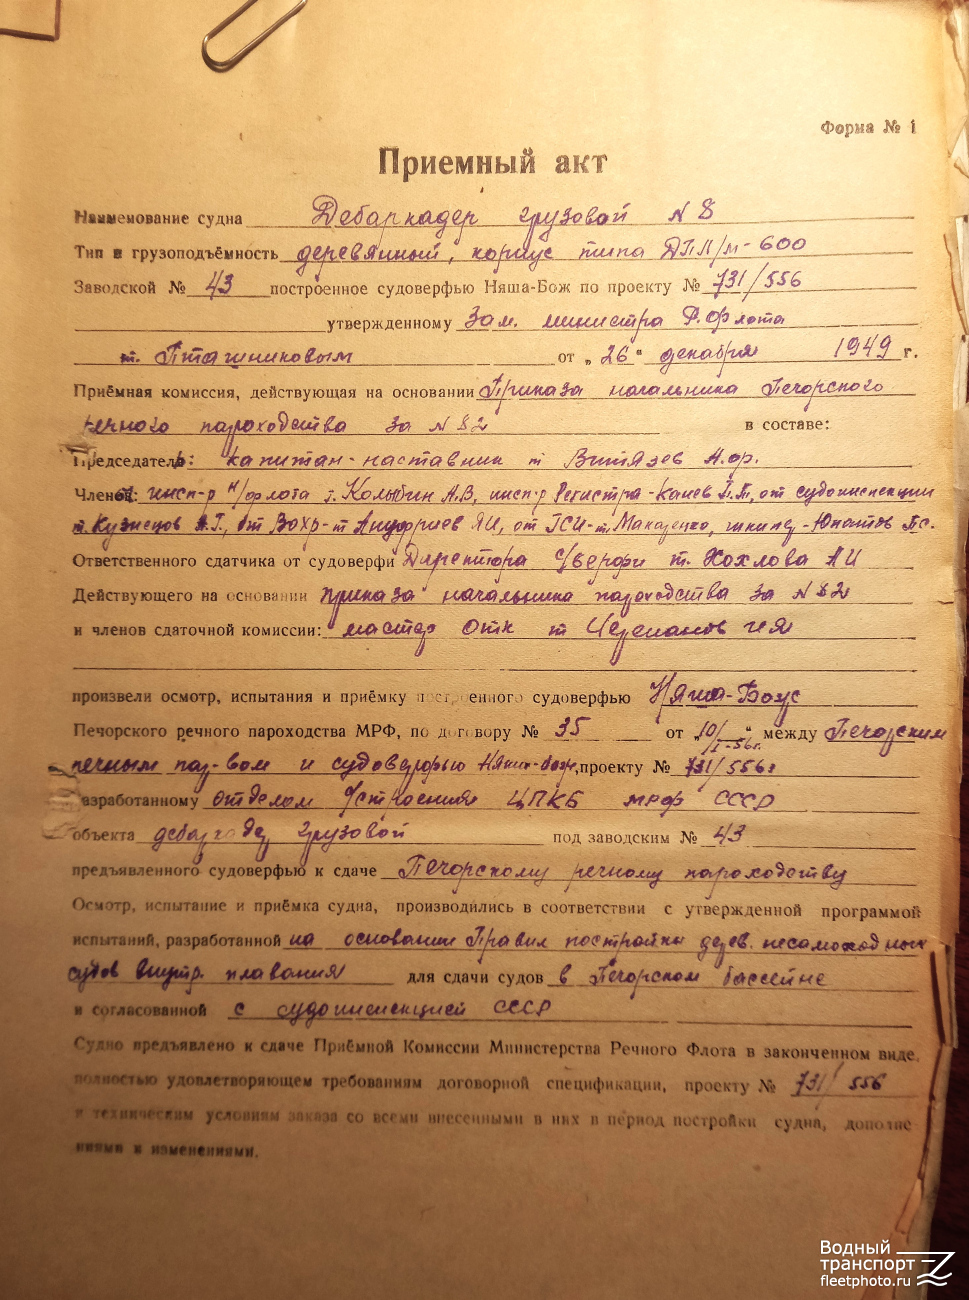 Форма № 1
Приемный акт
Наименование судна Дебаркадер грузовой N 8
Тип и грузоподъёмность деревянный, корпус типа ДПЛ/м-600
Заводской № 43 построенное судоверфью Няша-Бож по проекту № 731/556
утвержденному Зам. министра Р.Флота
т. Пташниковым от „ 26 " декабря 1949 г.
Приёмная комиссия, действующая на основании Приказа начальника Печорского
речного пароходства за N 82 в составе:
Председатель: капитан-наставник т Витязев Н.Фр.
Членов: инсп-р Н/флота т. Колыбин А.В, инсп-р Регистра-Канев П.П, от судоинспекции
т. Кузнецов А.Г., от Вохр-т Андриев ЯИ, от ГСИ-т. Макаренко, шкипер-Юпатов Пс.
Ответственного сдатчика от судоверфи Директора с/верфи т. Хохлова АИ
Действующего на основании приказа начальника пароходства за N 82
и членов сдаточной комиссии: мастер Отк т Черепанов ИЯ
произвели осмотр, испытания и приёмку построенного судоверфью Няша-Бож
Печорского речного пароходства МРФ, по договору № 35 от „10/I-56г." между Печорским
речным пар-вом и судоверфью Няша-бож, проекту № 731/556г
разработанному отделом Устроения ЦПКБ МРФ СССР
объекта дебаркадер грузовой под заводским № 43
предъявленного судоверфью к сдаче Печорскому речному пароходству
Осмотр, испытание и приёмка судна, производились в соответствии с утвержденной программой
испытаний, разработанной на основании Правил постройки дерев. несамоходных
судов внутр. плавания для сдачи судов в Печорском бассейне
и согласованной с судоинспекцией СССР
Судно предъявлено к сдаче Приёмной Комиссии Министерства Речного Флота в законченном виде,
полностью удовлетворяющем требованиям договорной спецификации, проекту № 731/556
и техническим условиям заказа со всеми внесенными в них в период постройки судна, дополне
ниями и изменениями.
Водный
транспорт
fleetphoto.ru